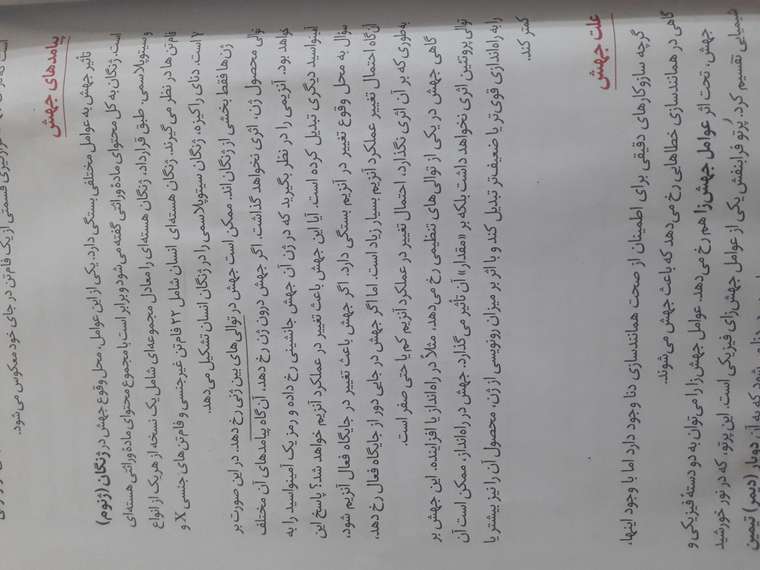 قسمتی از یک فام‌تن در جای خود معکوس می‌شود.
پیامدهای جهش
تأثیر جهش به عوامل مختلفی بستگی دارد. یکی از این عوامل، محل وقوع جهش در ژنگان (ژنوم)
است. ژنگان به کل محتوای مادهٔ وراثتی گفته می‌شود و برابر است با مجموع محتوای مادهٔ وراثتی هسته‌ای
و سیتوپلاسمی. طبق قرارداد، ژنگان هسته‌ای را معادل مجموعه‌ای شامل یک نسخه از هر یک از انواع
فام‌تن‌ها در نظر می‌گیرند. ژنگان هسته‌ای انسان شامل ۲۲ فام‌تن غیرجنسی و فام‌تن‌های جنسی X و
Y است. دنای راکیزه، ژنگان سیتوپلاسمی را در ژنگان انسان تشکیل می‌دهد.
ژن‌ها فقط بخشی از ژنگان‌اند. ممکن است جهش در توالی‌های بین ژنی رخ دهد. در این صورت بر
توالی محصول ژن، اثری نخواهد گذاشت. اگر جهش درون ژن رخ دهد، آن گاه پیامدهای آن مختلف
خواهد بود. آنزیمی را در نظر بگیرید که در ژن آن جهش جانشینی رخ داده و رمز یک آمینواسید را به
آمینواسید دیگری تبدیل کرده است. آیا این جهش باعث تغییر در عملکرد آنزیم خواهد شد؟ پاسخ این
سؤال به محل وقوع تغییر در آنزیم بستگی دارد. اگر جهش باعث تغییر در جایگاه فعال آنزیم شود،
آن گاه احتمال تغییر عملکرد آنزیم بسیار زیاد است. اما اگر جهش در جایی دور از جایگاه فعال رخ دهد،
به‌طوری که بر آن اثری نگذارد، احتمال تغییر در عملکرد آنزیم کم یا حتی صفر است.
گاهی جهش در یکی از توالی‌های تنظیمی رخ می‌دهد، مثلاً در راه‌انداز یا افزاینده. این جهش بر
توالی پروتئین اثری نخواهد داشت بلکه بر «مقدار» آن تأثیر می‌گذارد. جهش در راه‌انداز، ممکن است آن
را به راه‌اندازی قوی‌تر یا ضعیف‌تر تبدیل کند و با اثر بر میزان رونویسی از ژن، محصول آن را نیز بیشتر یا
کمتر کند.
علت جهش
گرچه سازوکارهای دقیقی برای اطمینان از صحت همانندسازی دنا وجود دارد اما با وجود اینها،
گاهی در همانندسازی خطاهایی رخ می‌دهد که باعث جهش می‌شوند.
جهش، تحت اثر عوامل جهش‌زا هم رخ می‌دهد. عوامل جهش‌زا را می‌توان به دو دستهٔ فیزیکی و
شیمیایی تقسیم کرد. پرتو فرابنفش یکی از عوامل جهش‌زای فیزیکی است. این پرتو، که در نور خورشید
دوپار (دیمر) تیمین